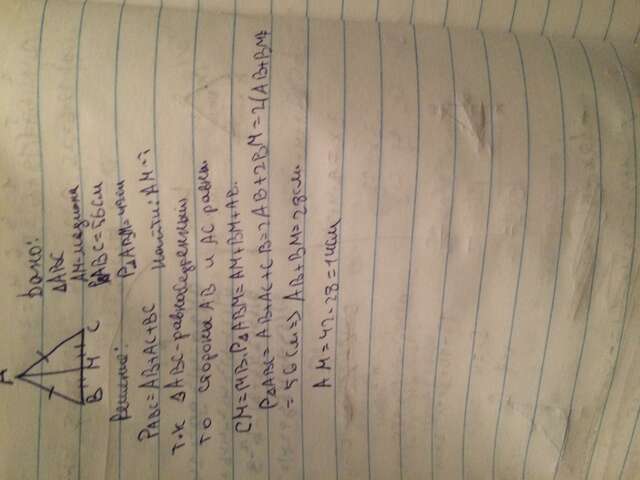 A
B M C
Дано:
ΔABC
AM-медиана
PΔABC=56см
PΔABM=42см
Найти: AM-?
Решение:
PABC=AB+AC+BC
т.к ΔABC-равнобедренный
то стороны AB и AC равны.
CM=MB. PΔABM=AM+BM+AB.
PΔABC=AB+AC+CB=2AB+2BM=2(AB+BM)=
=56см=>AB+BM=28см
AM=42-28=14см